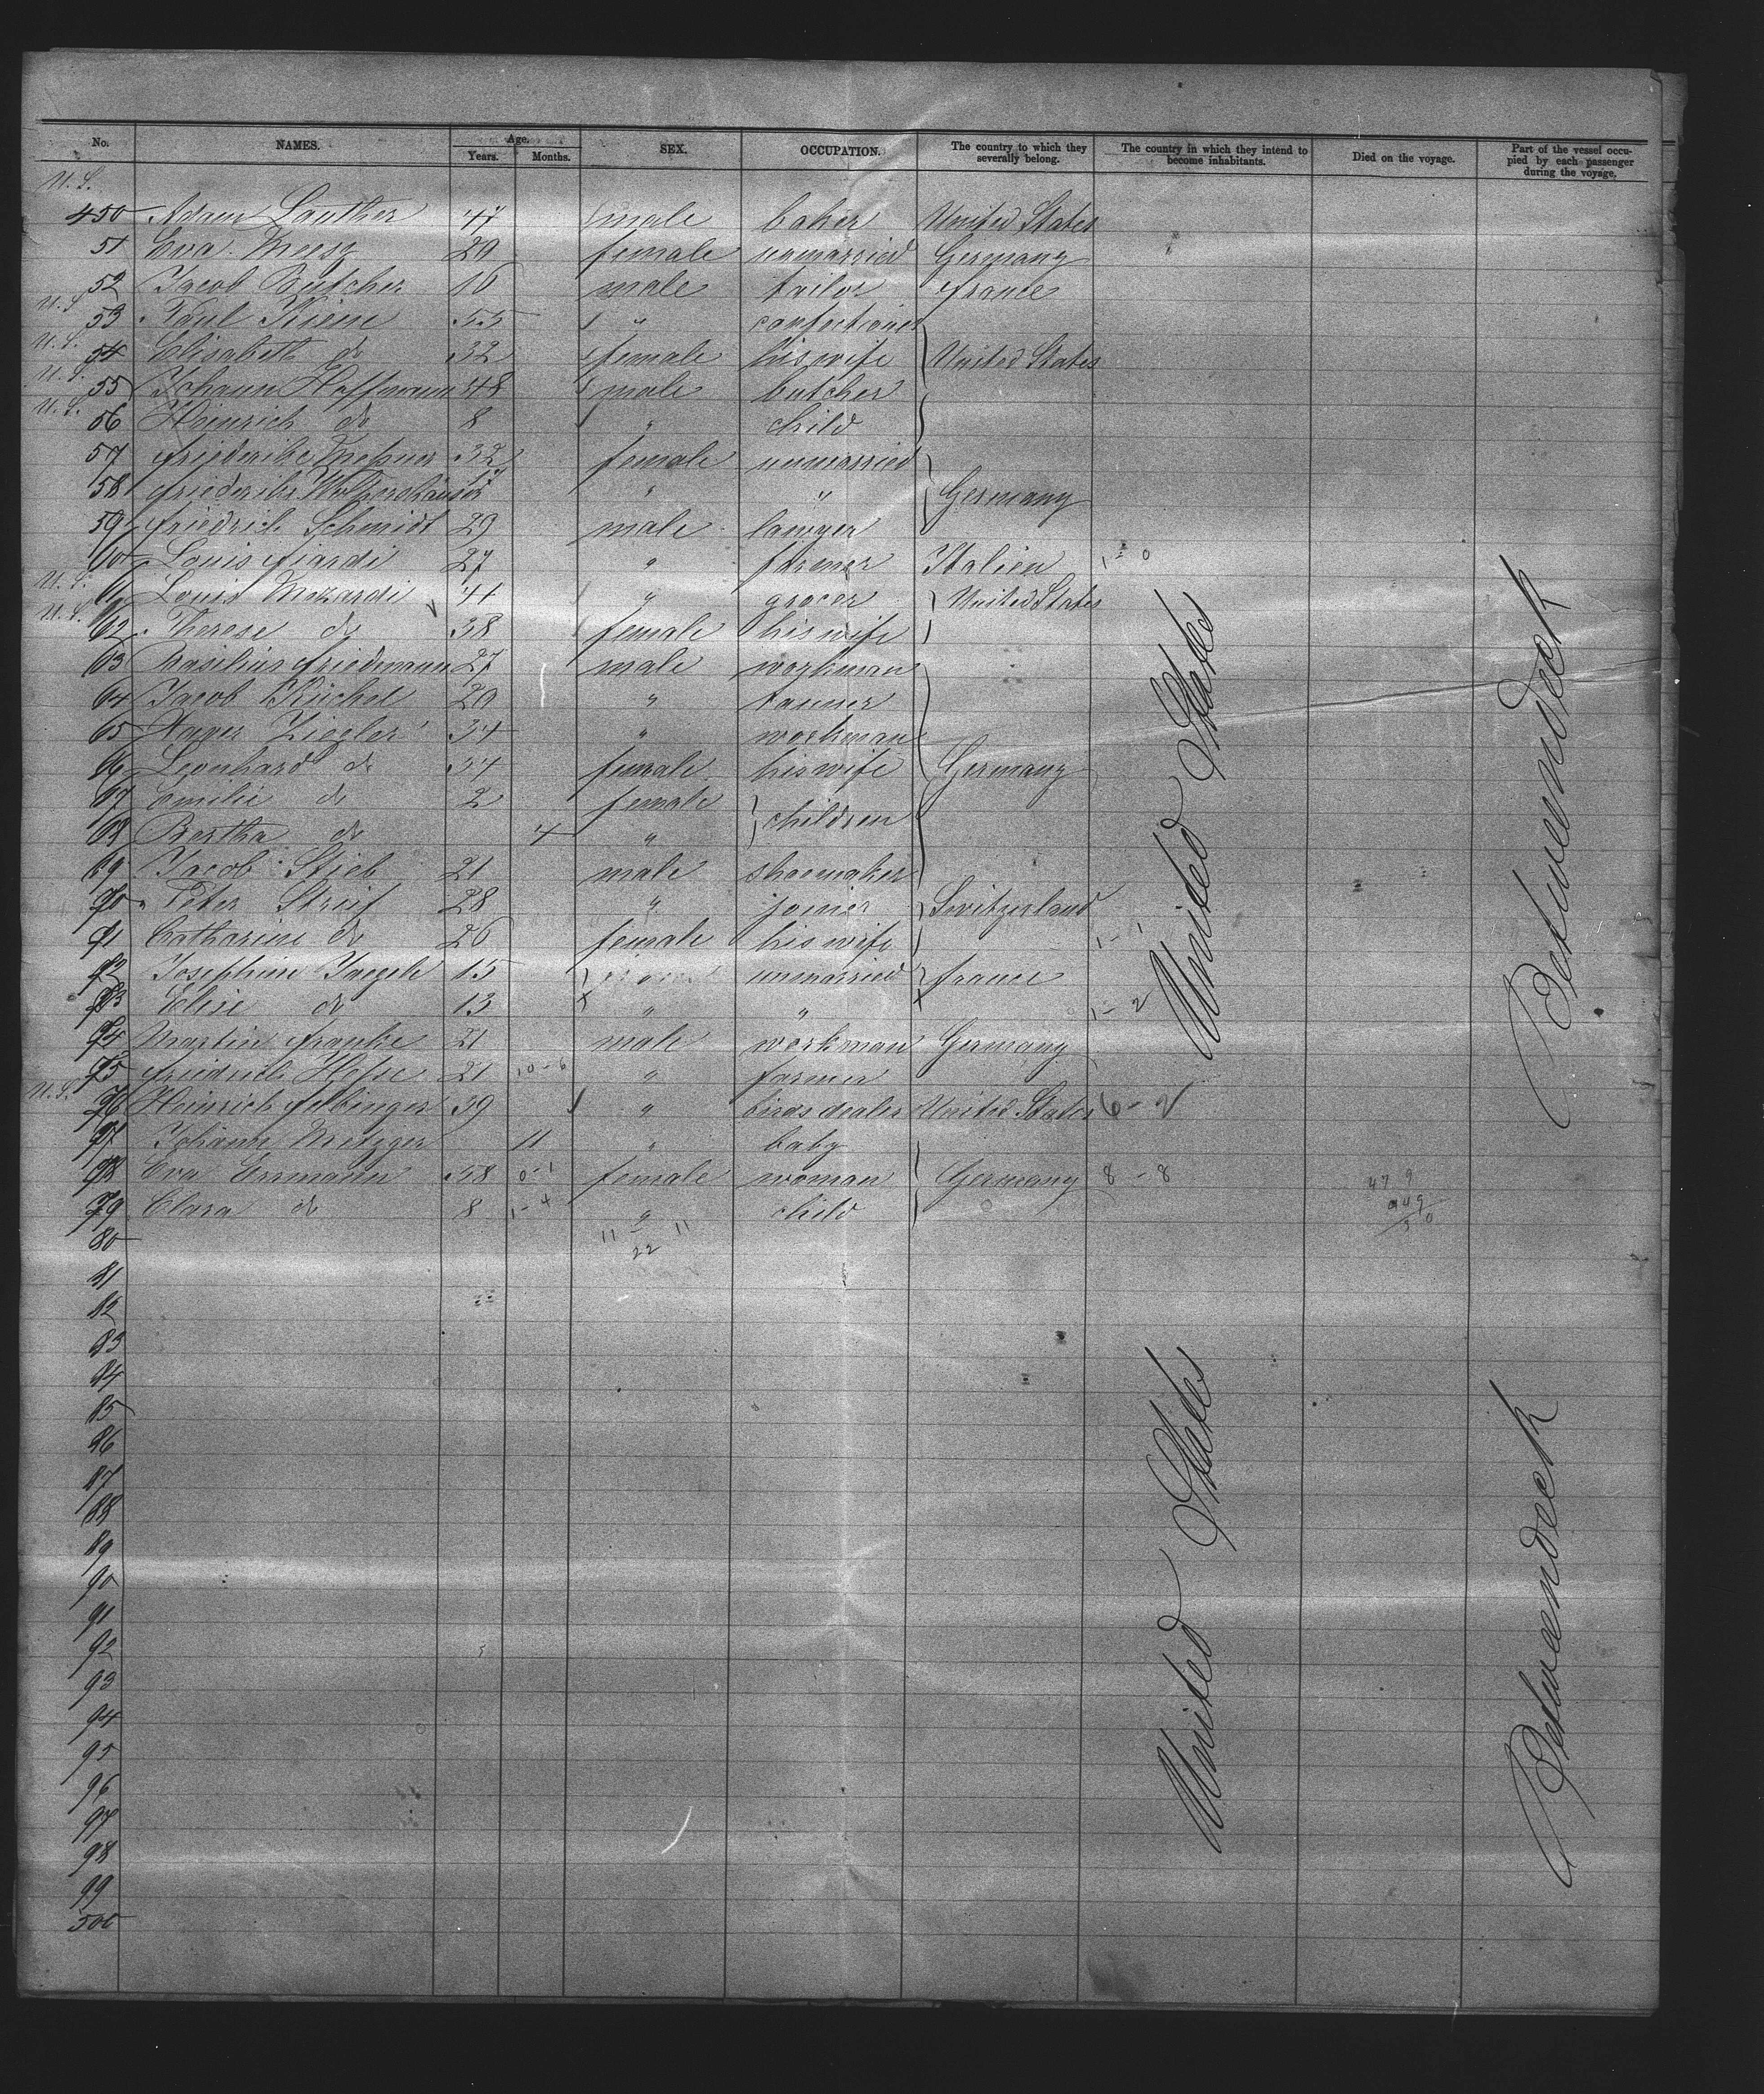 No. NAMES. Age. Years. Months. SEX. OCCUPATION. The country to which they severally belong. The country in which they intend to become inhabitants. Died on the voyage. Part of the vessel occupied by each passenger during the voyage.
U.S.
450 Adam Lauther 47 male baker United States
51 Eva Meesz 29 female unmarried Germany
52 Jacob Butcher 16 male tailor France
U.S. 53 Paul Kiene 55 " confectioner
U.S. 54 Elisabeth do 32 female his wife United States
U.S. 55 Johann Hoffmann 48 male butcher
U.S. 56 Heinrich do 8 " child
57 Friederike 32 female unmarried
58 Friederike " "  Germany
59 Friedrich Schmidt 29 male lawyer
60 Louis 27 " farmer Italien 1 - 0
U.S. 61 Louis Mozardi 41 " grocer United States
U.S. 62 Therese do 38 female his wife
63 Basilius Friedmann 27 male workman
64 Jacob Küchel 29 " tanner
65 Xaver Ziegler 34 " workman
66 Leonhard do 34 female his wife Germany
67 Emilie do 2 female
68 Bertha do 4 " children
69 Jacob Stieb 21 male shoemaker
70 Peter Streif 28 " joiner Switzerland
71 Catharine do 26 female his wife 1 - 1
72 Josephine Jaegele 15 unmarried France
73 Elise do 13 " " 1 - 2
74 Martin Franke 21 male workman Germany
75 Friedrich 21 10-6 " farmer
U.S. 76 Heinrich Felbinger 39 " birds dealer United States 6 - 2
77 Johann Metzger 11 " baby
78 Eva Ersmann 58 0-1 female woman Germany 8 - 8
79 Clara do 8 1-4 " child
80 11 22 11
81
82
83
84
85
86
87
88
89
90
91
92
93
94
95
96
97
98
99
500
United States
Betweendeck
United States
Betweendeck